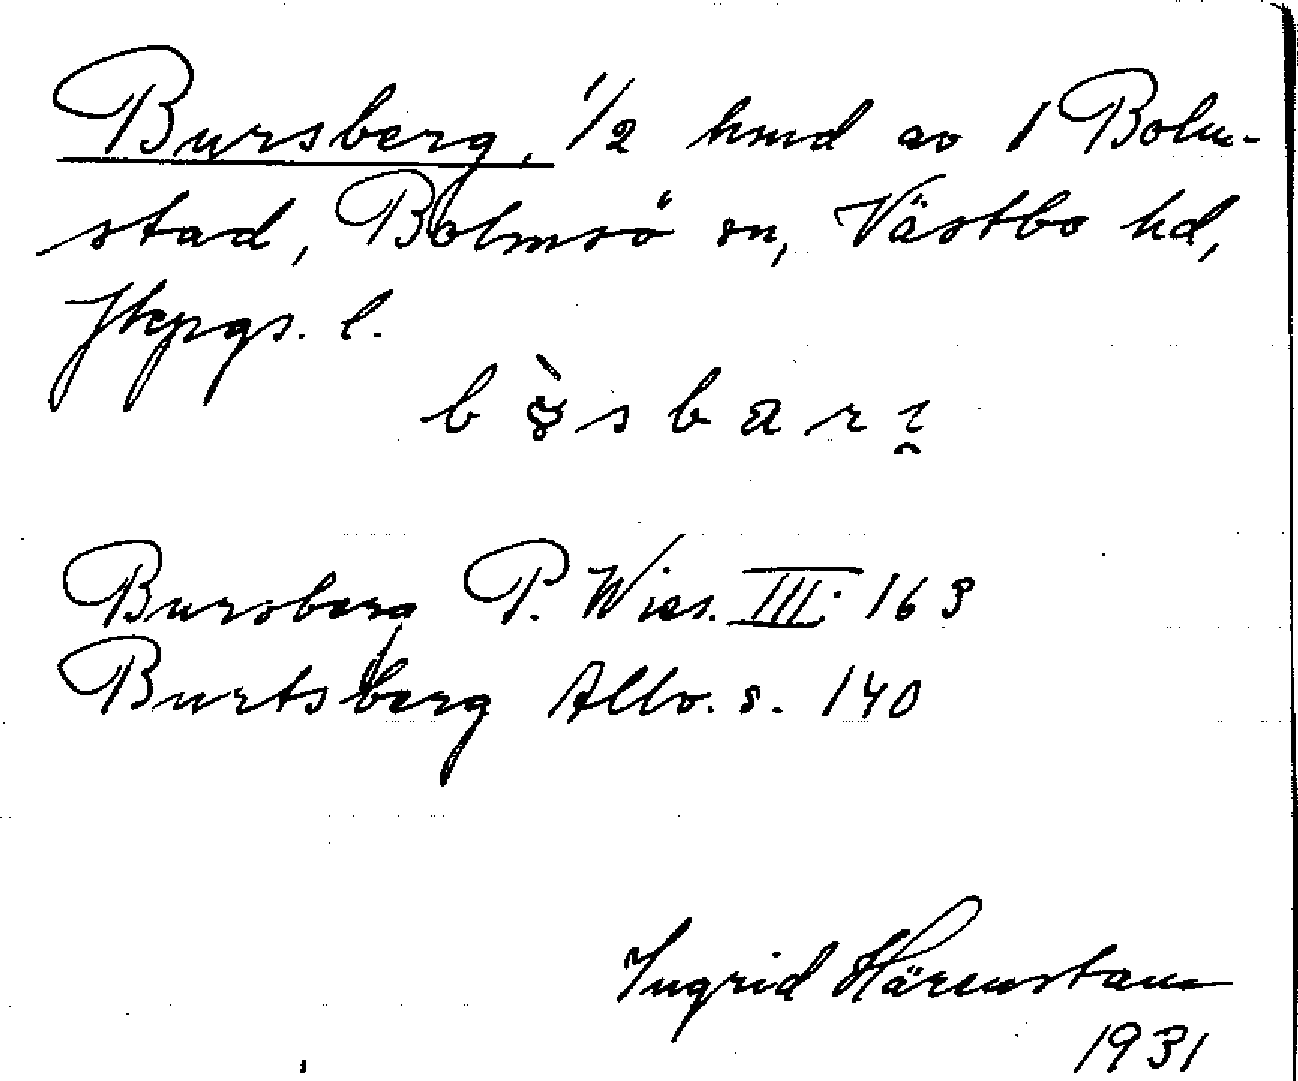 Bursberg, 1/2 hmd av 1 Bolm-
stad, Bolmsö sn, Västbo hd,
Jkpgs. l.
Bursberg P. Wies. III. 163
Burtsberg Allv. s. 140
Ingrid Härenstam
1931